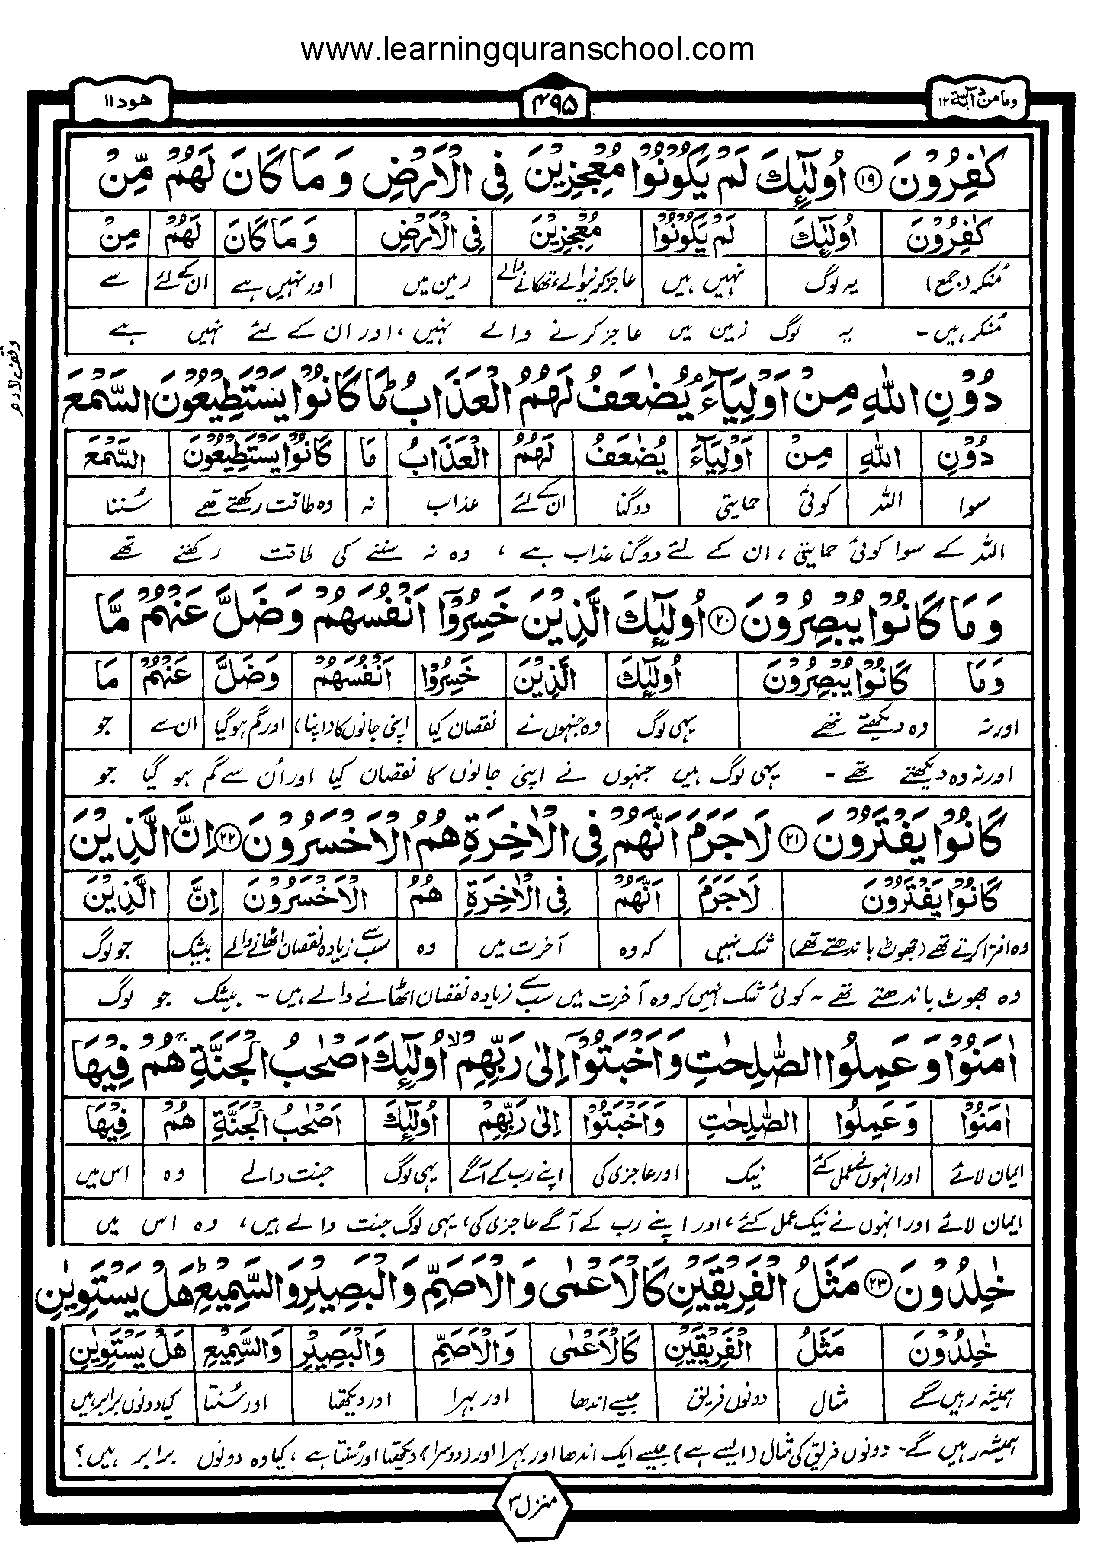 www.learningquranschool.com
وما من دآبة ۱۲
۴۹۵
هود ۱۱
كٰفِرُوْنَ ۝۱۹ اُولٰٓئِكَ لَمْ يَكُوْنُوْا مُعْجِزِيْنَ فِى الْاَرْضِ وَ مَا كَانَ لَهُمْ مِّنْ
كٰفِرُوْنَ اُولٰٓئِكَ لَمْ يَكُوْنُوْا مُعْجِزِيْنَ فِى الْاَرْضِ وَ مَا كَانَ لَهُمْ مِنْ
منکر (جمع) یہ لوگ نہیں ہیں عاجز کرنیوالے، تھکانے والے زمین میں اور نہیں ہے ان کے لئے سے
منکر ہیں۔ یہ لوگ زمین میں عاجز کرنے والے نہیں، اور ان کے لئے نہیں ہے
وقف لازم
دُوْنِ اللّٰهِ مِنْ اَوْلِيَآءَ ۘ يُضٰعَفُ لَهُمُ الْعَذَابُ ؕ مَا كَانُوْا يَسْتَطِيْعُوْنَ السَّمْعَ
دُوْنِ اللّٰهِ مِنْ اَوْلِيَآءَ يُضٰعَفُ لَهُمُ الْعَذَابُ مَا كَانُوْا يَسْتَطِيْعُوْنَ السَّمْعَ
سوا اللہ کوئی حمایتی دوگنا ان کے لئے عذاب نہ وہ طاقت رکھتے تھے سُننا
اللہ کے سوا کوئی حمایتی، ان کے لئے دوگنا عذاب ہے، وہ نہ سننے کی طاقت رکھتے تھے
وَ مَا كَانُوْا يُبْصِرُوْنَ ۝۲۰ اُولٰٓئِكَ الَّذِيْنَ خَسِرُوْٓا اَنْفُسَهُمْ وَ ضَلَّ عَنْهُمْ مَّا
وَ مَا كَانُوْا يُبْصِرُوْنَ اُولٰٓئِكَ الَّذِيْنَ خَسِرُوْا اَنْفُسَهُمْ وَ ضَلَّ عَنْهُمْ مَا
اور نہ وہ دیکھتے تھے یہی لوگ وہ جنہوں نے نقصان کیا اپنی جانوں کا (اپنا) اور گم ہوگیا ان سے جو
اور نہ وہ دیکھتے تھے۔ یہی لوگ ہیں جنہوں نے اپنی جانوں کا نقصان کیا اور اُن سے گم ہو گیا جو
كَانُوْا يَفْتَرُوْنَ ۝۲۱ لَا جَرَمَ اَنَّهُمْ فِى الْاٰخِرَةِ هُمُ الْاَخْسَرُوْنَ ۝۲۲ اِنَّ الَّذِيْنَ
كَانُوْا يَفْتَرُوْنَ لَا جَرَمَ اَنَّهُمْ فِى الْاٰخِرَةِ هُمُ الْاَخْسَرُوْنَ اِنَّ الَّذِيْنَ
وہ افترا کرتے تھے (جھوٹ باندھتے تھے) شک نہیں کہ وہ آخرت میں وہ سب سے زیادہ نقصان اٹھانے والے بیشک جو لوگ
وہ جھوٹ باندھتے تھے۔ کوئی شک نہیں کہ وہ آخرت میں سب سے زیادہ نقصان اٹھانے والے ہیں۔ بیشک جو لوگ
اٰمَنُوْا وَ عَمِلُوا الصّٰلِحٰتِ وَ اَخْبَتُوْٓا اِلٰى رَبِّهِمْ ۙ اُولٰٓئِكَ اَصْحٰبُ الْجَنَّةِ ۚ هُمْ فِيْهَا
اٰمَنُوْا وَ عَمِلُوا الصّٰلِحٰتِ وَ اَخْبَتُوْا اِلٰى رَبِّهِمْ اُولٰٓئِكَ اَصْحٰبُ الْجَنَّةِ هُمْ فِيْهَا
ایمان لائے اور انہوں نے عمل کئے نیک اور عاجزی کی اپنے رب کے آگے یہی لوگ جنت والے وہ اس میں
ایمان لائے اور انہوں نے نیک عمل کئے، اور اپنے رب کے آگے عاجزی کی، یہی لوگ جنت والے ہیں، وہ اس میں
خٰلِدُوْنَ ۝۲۳ مَثَلُ الْفَرِيْقَيْنِ كَالْاَعْمٰى وَ الْاَصَمِّ وَ الْبَصِيْرِ وَ السَّمِيْعِ ؕ هَلْ يَسْتَوِيٰنِ
خٰلِدُوْنَ مَثَلُ الْفَرِيْقَيْنِ كَالْاَعْمٰى وَ الْاَصَمِّ وَ الْبَصِيْرِ وَ السَّمِيْعِ هَلْ يَسْتَوِيٰنِ
ہمیشہ رہیں گے مثال دونوں فریق جیسے اندھا اور بہرا اور دیکھتا اور سُنتا کیا دونوں برابر ہیں
ہمیشہ رہیں گے۔ دونوں فریق کی مثال (ایسے ہے) جیسے ایک اندھا اور بہرا اور (دوسرا) دیکھتا اور سُنتا ہے، کیا وہ دونوں برابر ہیں؟
منزل ۳